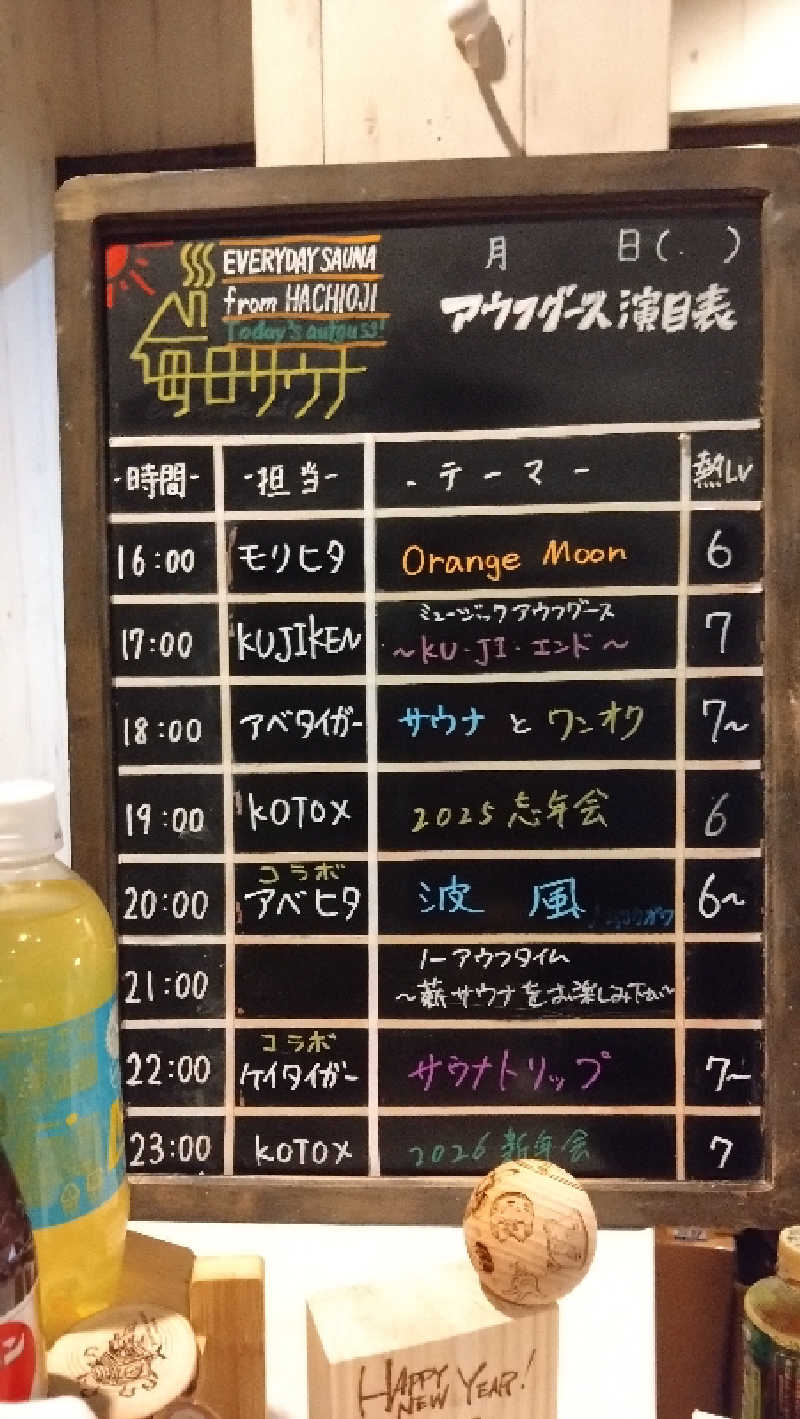 月 日( . )
EVERYDAY SAUNA
from HACHIOJI
Today's aufguss!
毎日サウナ
アウフグース演目表
-時間- -担当- -テーマ- 熱LV
16:00 モリヒタ Orange Moon 6
ミュージックアウフグース
17:00 KUJIKEN ～KU・JI・エンド～ 7
18:00 アベタイガー サウナ と ワンオク 7～
19:00 KOTOX 2025 忘年会 6
コラボ
20:00 アベヒタ 波 風 6～
ノーアウフタイム
21:00 ～薪サウナをお楽しみ下さい～
コラボ
22:00 ケイタイガー サウナトリップ 7～
23:00 KOTOX 2026 新年会 7
HAPPY
NEW YEAR!